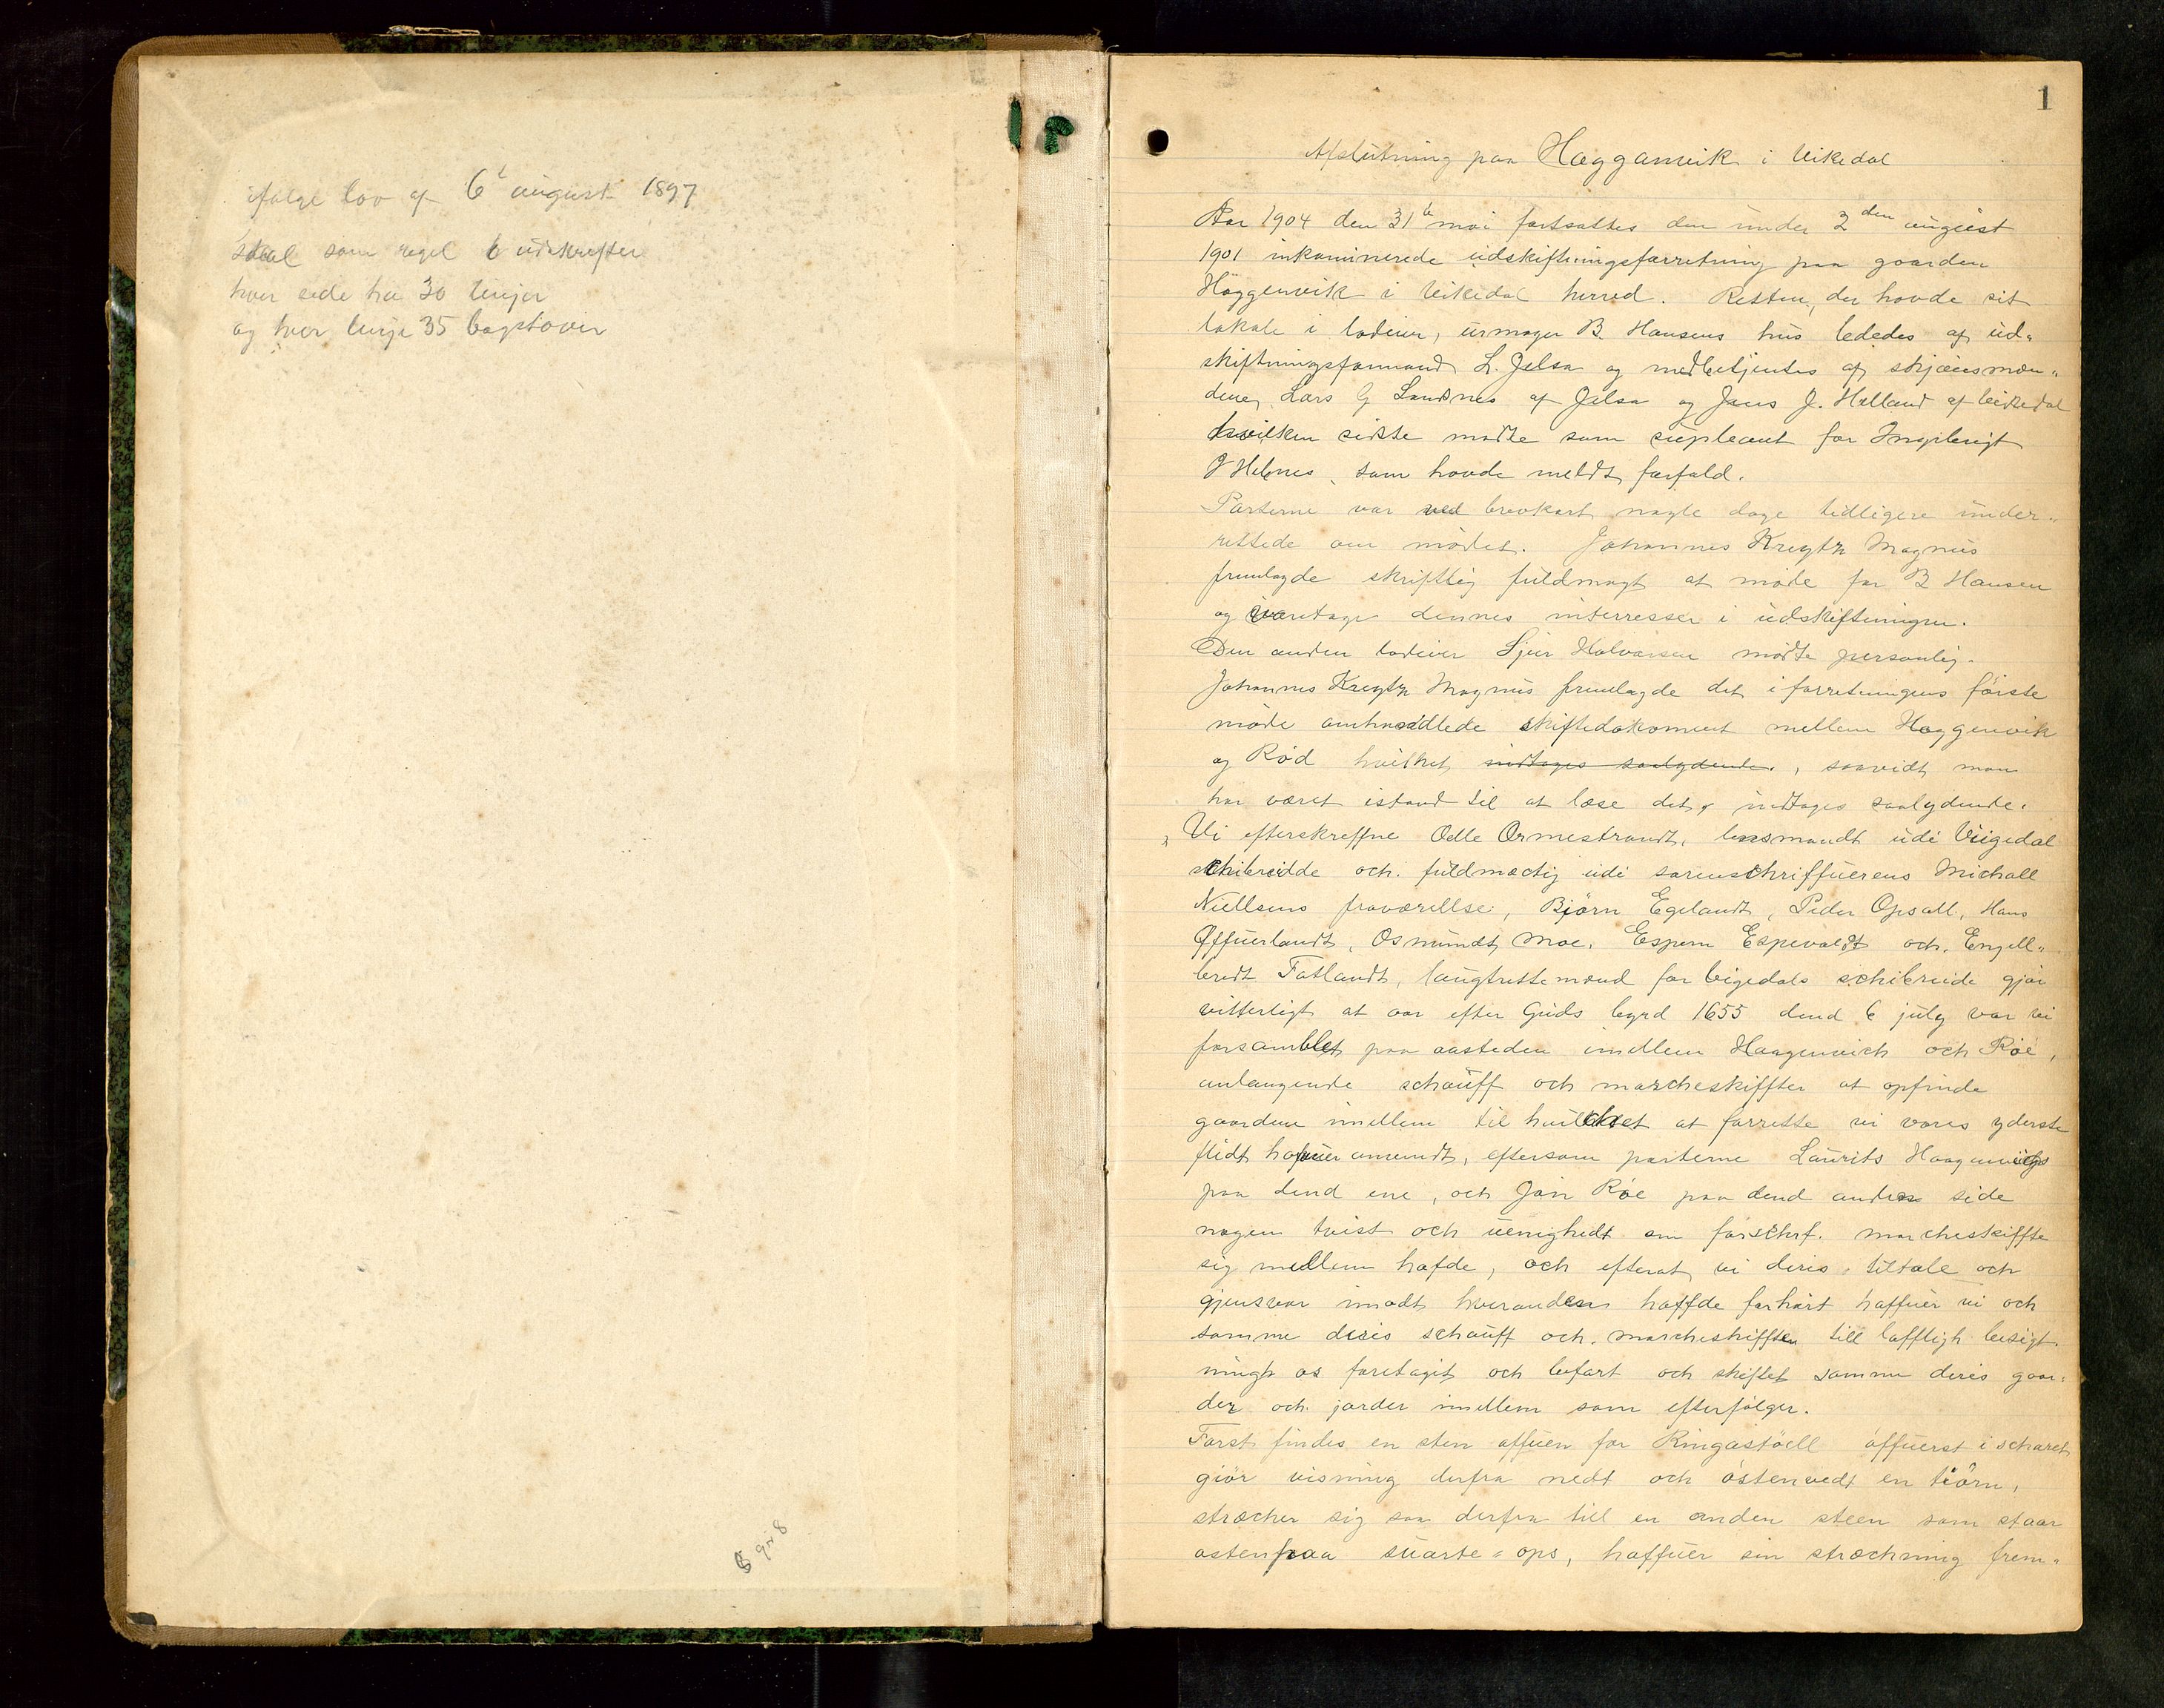 ifølge lov af 6t august 1897
skal som regel udskrifter
hver side ha 30 linjer
og hver linje 35 bogstaver
1
Afslutning paa Hæggamvik i Vikedal
Aar 1904 den 31te mai fortsattes den under 2den august
1901 inkaminerede udskiftningsforretning paa gaarden
Häggenvik i Vikedal herred. Retten, der havde sit
lokale i lodeier, urmager B. Hansens hus lededes af ud„
skiftningsformand L. Jelsa og medbetjentes af skjønsmæn„
dene, Lars G Sandnes af Jelsa og Jens J. Helland af Vikedal
hvilken sidste mødte som supleant for Ingebrigt
J Helgnes, som havde meldt forfald.
Parterne var ved brevkort nogle dage tidligere under„
rettede om mødet. Johannes Magnus
fremlagde skriftlig fuldmagt at møde for B Hansen
og varetage dennes interresser i udskiftningen.
Den anden lodeier Sjur Halvorsen mødte personlig.
Johannes Magnus fremlagde det i forretningens første
møde omhandlede skiftedokoment mellem Hæggenvik
og Rød hvilket indtages saalydende, saavidt man
har været istand til at læse det, indtages saalydende.
„Vi efterskreffne Odle Ormestrandt, lensmandt udi Viigedal
schibreidde och fuldmæctig udi sorenschriffuerens Michall
Niellsens fraværellse, Biörn Egelandt, Peder Opsall, Hans
Øffuerlandt, Osmundt Moe, Espern Espevoldt och Engell„
bredt Fatlandt, laugrettemænd for Vigedals schibreide gjør
vitterligt at aar efter Guds byrd 1655 dend 6 july var vi
forsamblet paa aasteden imellem Haagenvich och Röe,
anlangende schouff och marcheskiffter at opfinde
gaardene imellem til huilchet at forrette vi vores yderste
flidt hafuer anvendt, eftersom parterne Laurits Haagenvigs
paa dend ene, och Jon Röe paa dend anden side
nogen tvist och uenighedt om forschrf. marcheskiffte
sig mellem hafde, och efterat vi deris tiltale och
gjensvar imodt hverandern haffde forhørt haffuer vi och
samme deris schouff och marcheskifften till laffligh besigt„
ningh os foretagit och befart och skiftet samme deris gaar„
der och jorder imellem som efterfølger.
Forst findes en sten offuen for Ringastöell öffuerst i scharet
giör visning derfra nedt och østenvedt en tiörn,
strækcher sig saa derfra till en anden steen som staar
østenfraa suarte-ops, haffuer sin strechning frem„